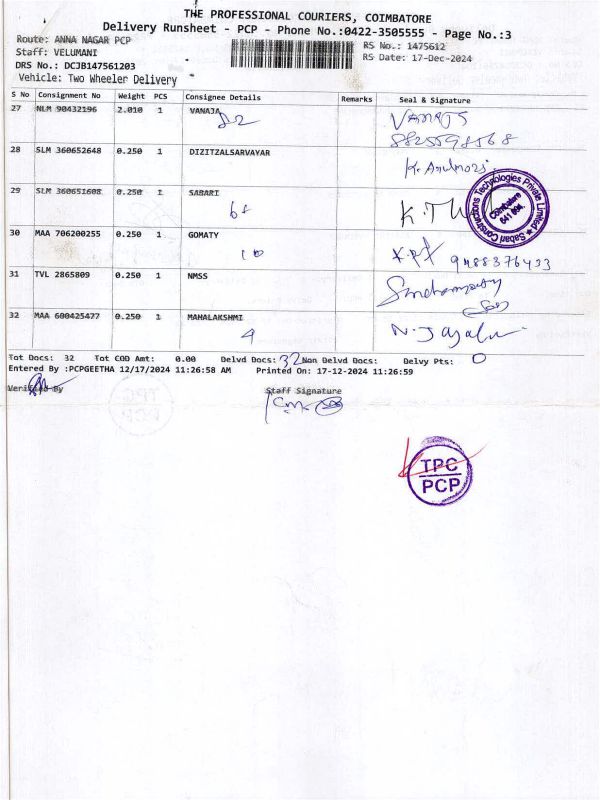 THE PROFESSIONAL COURIERS, COIMBATORE
Delivery Runsheet - PCP - Phone No.:0422-3505555 - Page No.:3
Route: ANNA NAGAR PCP
RS No.: 1475612
Staff: VELUMANI
RS Date: 17-Dec-2024
DRS No.: DCJB147561203
Vehicle: Two Wheeler Delivery
S No Consignment No Weight PCS Consignee Details Remarks Seal & Signature
27 NLM 90432196 2.010 1 VANAJA
82
28 SLM 360652648 0.250 1 DIZITZALSARVAYAR
29 SLM 360651608 0.250 1 SABARI
Sabari Constructions Technologies Private Limited
Coimbatore
641 004.
30 MAA 706200255 0.250 1 GOMATY
10
9488376433
31 TVL 2865809 0.250 1 NMSS
32 MAA 600425477 0.250 1 MAHALAKSHMI
4
Tot Docs: 32 Tot COD Amt: 0.00 Delvd Docs: 32 Non Delvd Docs: Delvy Pts: 0
Entered By :PCPGEETHA 12/17/2024 11:26:58 AM Printed On: 17-12-2024 11:26:59
Verified By Staff Signature
TPC
PCP
TPC
PCP